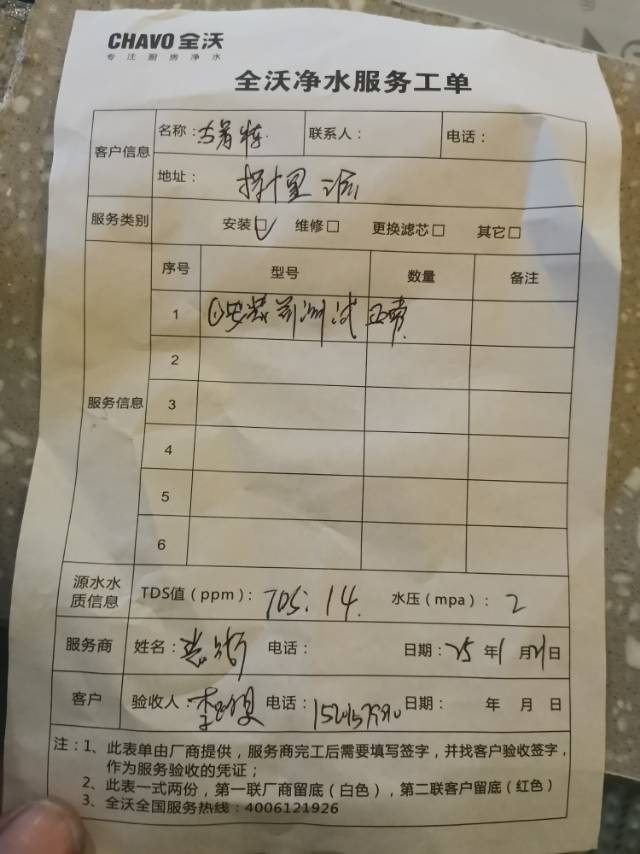 CHAVO 全沃
专注厨房净水
全沃净水服务工单
客户信息 名称： 联系人： 电话：
地址：
服务类别 安装□ 维修□ 更换滤芯□ 其它□
服务信息 序号 型号 数量 备注
1 ①安装前测试正常
2
3
4
5
6
源水水质信息 TDS值（ppm）：TDS：14. 水压（mpa）：2
服务商 姓名： 电话： 日期：25年1月21日
客户 验收人： 电话： 日期： 年 月 日
注：1、此表单由厂商提供，服务商完工后需要填写签字，并找客户验收签字，
作为服务验收的凭证；
2、此表一式两份，第一联厂商留底（白色），第二联客户留底（红色）
3、全沃全国服务热线：4006121926